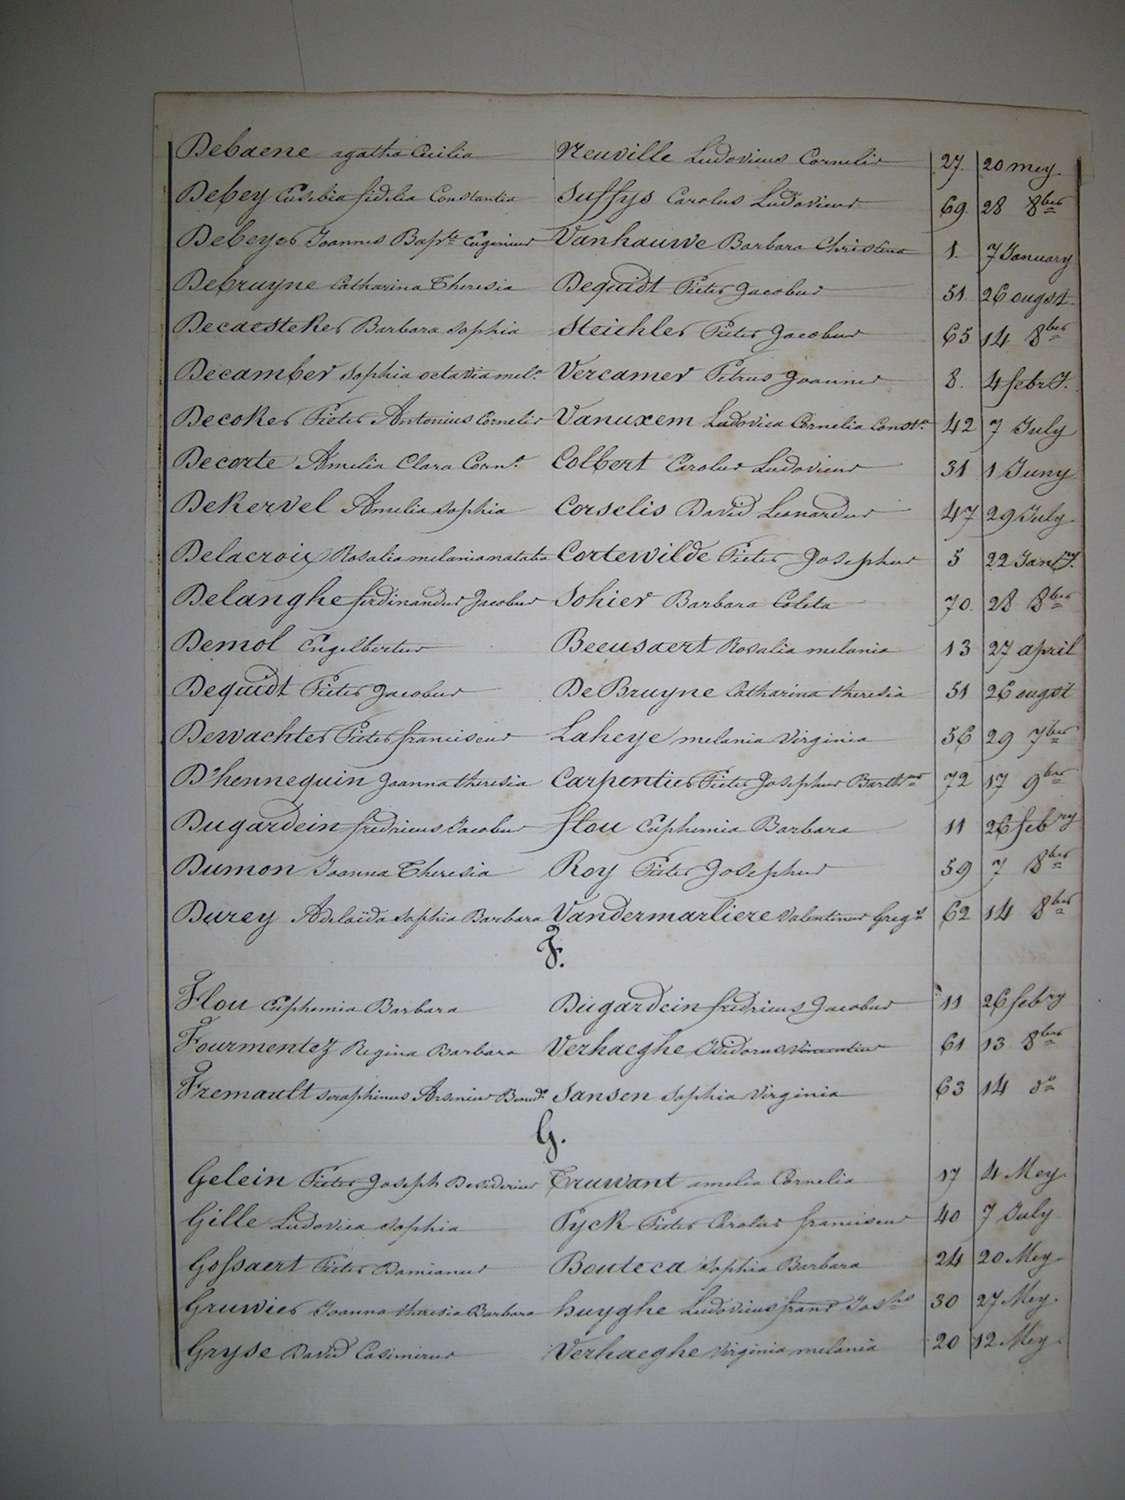 Debaene agatha Cecilia Neuville Ludovicus Cornelis 27. 20 mey.
Debey Eusebia fidelia Constantia Suffys Carolus Ludovicus 69 28 8ber
Debeyer Joannes Bapte Eugenius Vanhauwe Barbara Christina 1. 7 January
Debruyne Catharina Theresia Dequidt Pieter Jacobus 51. 26 ougst.
Decaesteker Barbara Sophia Steichler Pieter Jacobus 65 14 8ber
Decamber Sophia octavia mela Vercamer Petrus Joannes 8. 4 febry.
Decoker Pieter Antonius Cornelis Vanuxem Ludovica Cornelia Consta 42 7 July
Decorte Amelia Clara Corna Colbert Carolus Ludovicus 31 1 Juny
Dekervel Amelia Sophia Corselis David Leonardus 47 29 July
Delacroix Rosalia melania natalia Cortewilde Pieter Josephus 5 22 Jany.
Delanghe ferdinandus Jacobus Sohier Barbara Coleta 70. 28 8ber
Demol Engelbertus Beeusaert Rosalia melania 13 27 april
Dequidt Pieter Jacobus DeBruyne Catharina theresia 51 26 ougst
Dewachter Pieter franciscus Laheye melania Virginia 56 29 7ber
D'hennequin Joanna theresia Carpentier Pieter Josephus Barthus 72 17 9ber
Dugardein fredricus Jacobus flou Euphemia Barbara 11 26 febry
Dumon Joanna Theresia Roy Pieter Josephus 59 7 8ber
Durey Adelaida Sophia Barbara Vandermarliere Valentinus Gregs 62 14 8ber
F.
Flou Euphemia Barbara Dugardein fredricus Jacobus 11 26 febry
Fourmentez Regina Barbara Verhaeghe Isidorus Vincentius 61 13 8ber
Fremault Seraphinus Arsenius Bened. Jansen Sophia Virginia 63 14 do
G.
Gelein Pieter Joseph Desiderius Truwant amelia Cornelia 17 4 Mey.
Gille Ludovica Sophia Pyck Pieter Carolus franciscus 40 7 July
Gossaert Pieter Damianus Bouteca Sophia Barbara 24 20 Mey.
Gruwier Joanna theresia Barbara huyghe Ludovicus frans Josphs 30 27 Mey.
Gryse David Casimirus Verhaeghe Virginia melania 20 12 Mey